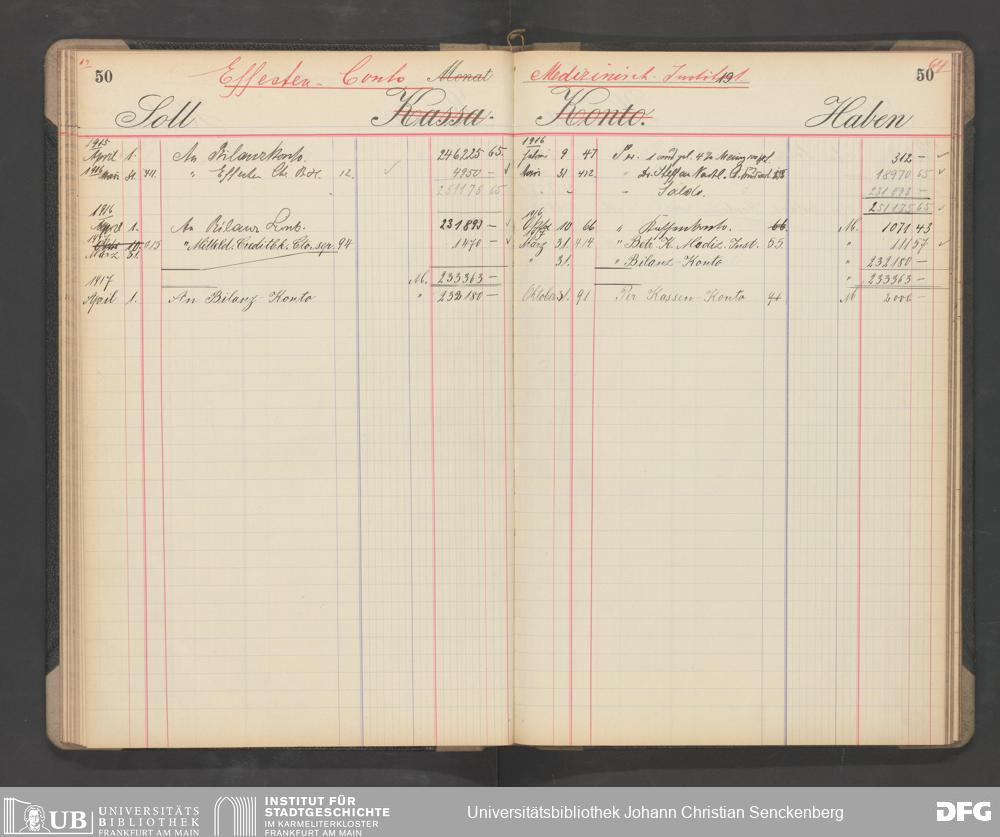 50
Effecten-Conto Monat
Medizinisch. Institut 191
50
64
Soll
Kassa.
Konto.
Haben
1915
April 1. An Bilanzkonto. 246225 65.
1916
März 31. " Effecten Cto 12. 4950 —
251175 65
1916
April 1. An Bilanz 231893 —
1917
März 31. " Mitteld. Creditbk. Cto. sep. 94 1470 —
M. 233363 —
1917
April 1. An Bilanz-Konto " 232180 —
1916
9 47 312 —
März 31. 18970 65
" Saldo. 231893 —
251175 65
1916
Oktbr 10 66 " 66. M. 1071 43
1917
März 31. " Betr. K. Mediz. Inst. 55 " 111 57
" 31. " Bilanz-Konto " 232180 —
" 233363 —
Oktober 31. 91 Per Kassen-Konto 91 M 2000 —
UB UNIVERSITÄTS
BIBLIOTHEK
FRANKFURT AM MAIN
INSTITUT FÜR
STADTGESCHICHTE
IM KARMELITERKLOSTER
FRANKFURT AM MAIN
Universitätsbibliothek Johann Christian Senckenberg
DFG